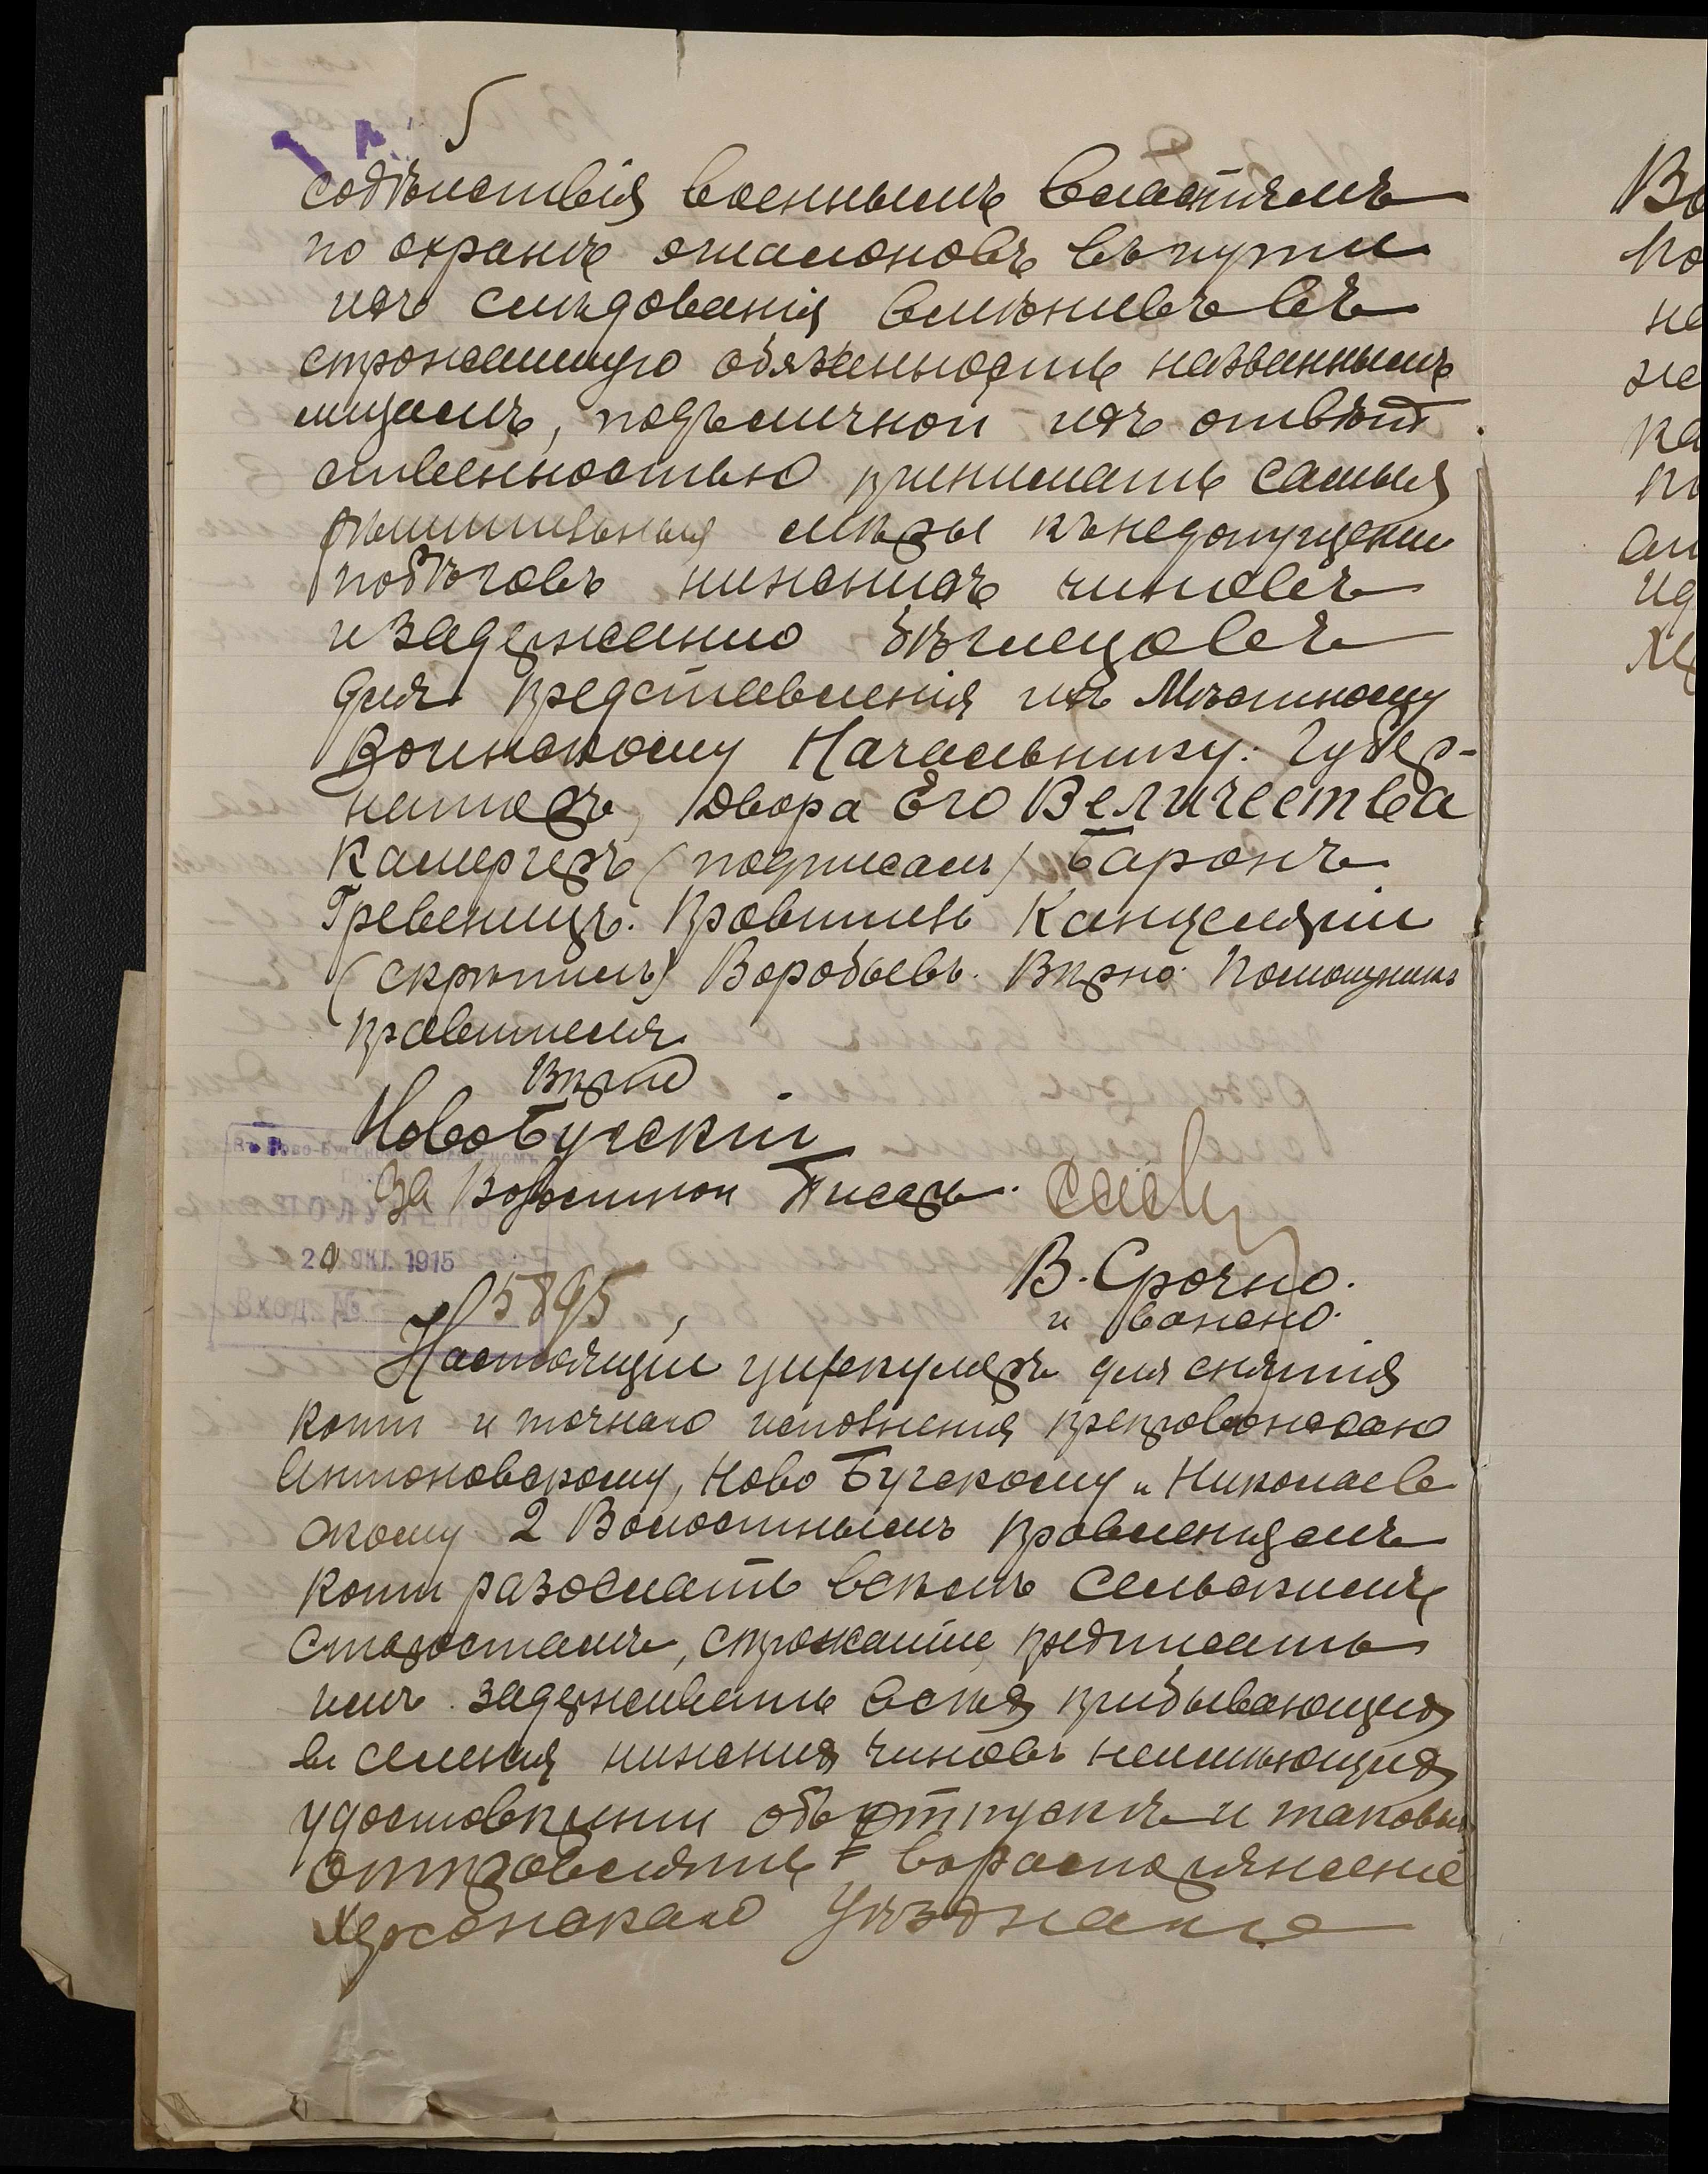 содѣйствія военнымъ властямъ
по охранѣ эшалоновъ въ пути
ихъ слѣдованія вмѣнивъ въ
строжайшую обязанность названнымъ
лицамъ, подъ личной ихъ отвѣт
ственностью принимать самыя
рѣшительныя мѣры къ недопущенiи
побѣговъ нижнихъ чиновъ
и задержанію бѣглецовъ
для представленія ихъ Мѣстному
Воинскому Начальнику. Губер-
наторъ, Двора Его Величества
Камергеръ (подписалъ) Баронъ
Гревеницъ. Правитель Канцеляріи
(скрѣпилъ) Воробьевъ. Вѣрно: Помощникъ
правителя
Вѣрно
Ново Бугскій
За Волостной Писарь.
В Ново-Бугскомъ Волостномъ
ПОЛУЧЕНО
21 ОКТ. 1915
Вход. №
5895
В. Срочно.
и важно.
Настоящій циркуляръ для снятія
копіи и точнаго исполненія препровождаю
Антоновскому, Ново Бугскому и Николаев
скому 2 Волостнымъ правленіямъ
копіи разослать всѣмъ Сельскимъ
Старостамъ, строжайше предписать
имъ задерживать всѣхъ прибывающихъ
въ селенія нижнихъ чиновъ неимѣющихъ
удостовѣреній объ отпускѣ и таковыхъ
отправлять въ распоряженіе
Херсонскаго Уѣзднаго
Во
по
не
же
ка